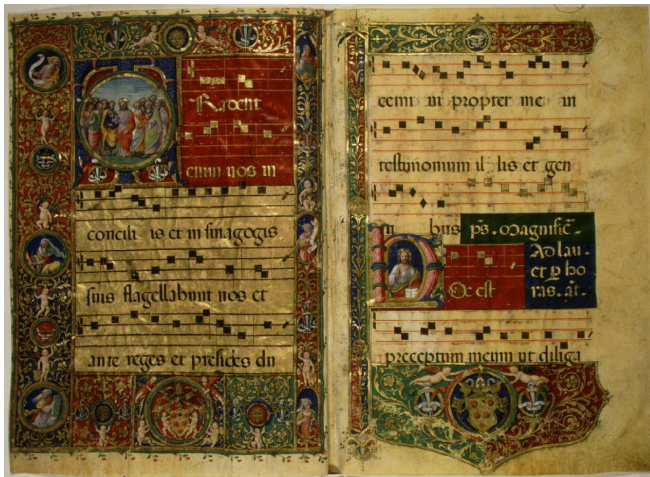 TRadent
enim uos in
concili is et in sinagogis
suis flagellabunt uos et
ante reges et presides du
cemi ni propter me in
testimonium il lis et gen
ti bus ps. Magnific.
Ad lau
HOc est
et p ho
ras. at.
preceptum meum ut diliga